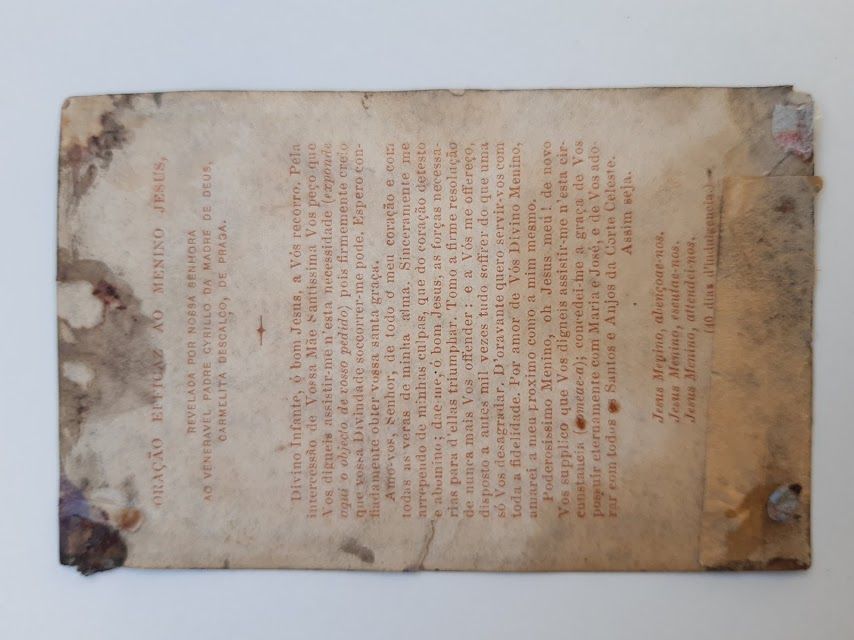 ORAÇÃO EFFICAZ AO MENINO JESUS,
REVELADA POR NOSSA SENHORA
AO VENERAVEL PADRE CYRILLO DA MADRE DE DEUS,
CARMELITA DESCALÇO, DE PRAGA.
Divino Infante, ó bom Jesus, a Vós recorro. Pela
intercessão de Vossa Mãe Santissima Vos peço que
Vos digneis assistir-me n'esta necessidade (exponde
aqui o objecto de vosso pedido) pois firmemente creio
que Vossa Divindade soccorrer-me pode. Espero con-
fiadamente obter vossa santa graça.
Amo-vos, Senhor, de todo o meu coração e com
todas as veras de minha alma. Sinceramente me
arrependo de minhas culpas, que do coração detesto
e abomino; dae-me, ó bom Jesus, as forças necessa-
rias para d'ellas triumphar. Tomo a firme resolução
de nunca mais Vos offender; e a Vós me offereço,
disposto a antes mil vezes tudo soffrer do que uma
só Vos desagradar. D'oravante quero servir-vos com
toda a fidelidade. Por amor de Vós Divino Menino,
amarei a meu proximo como a mim mesmo.
Poderosissimo Menino, oh Jesus meu! de novo
Vos supplico que Vos digneis assistir-me n'esta cir-
constancia (nomeae-a); concedei-me a graça de Vos
possuir eternamente com Maria e José, e de Vos ado-
rar com todos os Santos e Anjos da Corte Celeste.
Assim seja.
Jesus Menino, abençoae-nos.
Jesus Menino, escutae-nos.
Jesus Menino, attendei-nos.
(40 dias d'indulgencia.)